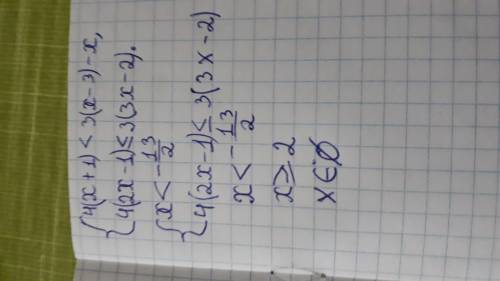 {4(x+1) < 3(x-3)-x,
{4(2x-1) ≤ 3(3x-2).
{x < -13/2
{4(2x-1) ≤ 3(3x-2)
x < -13/2
x ≥ 2
x ∈ ∅